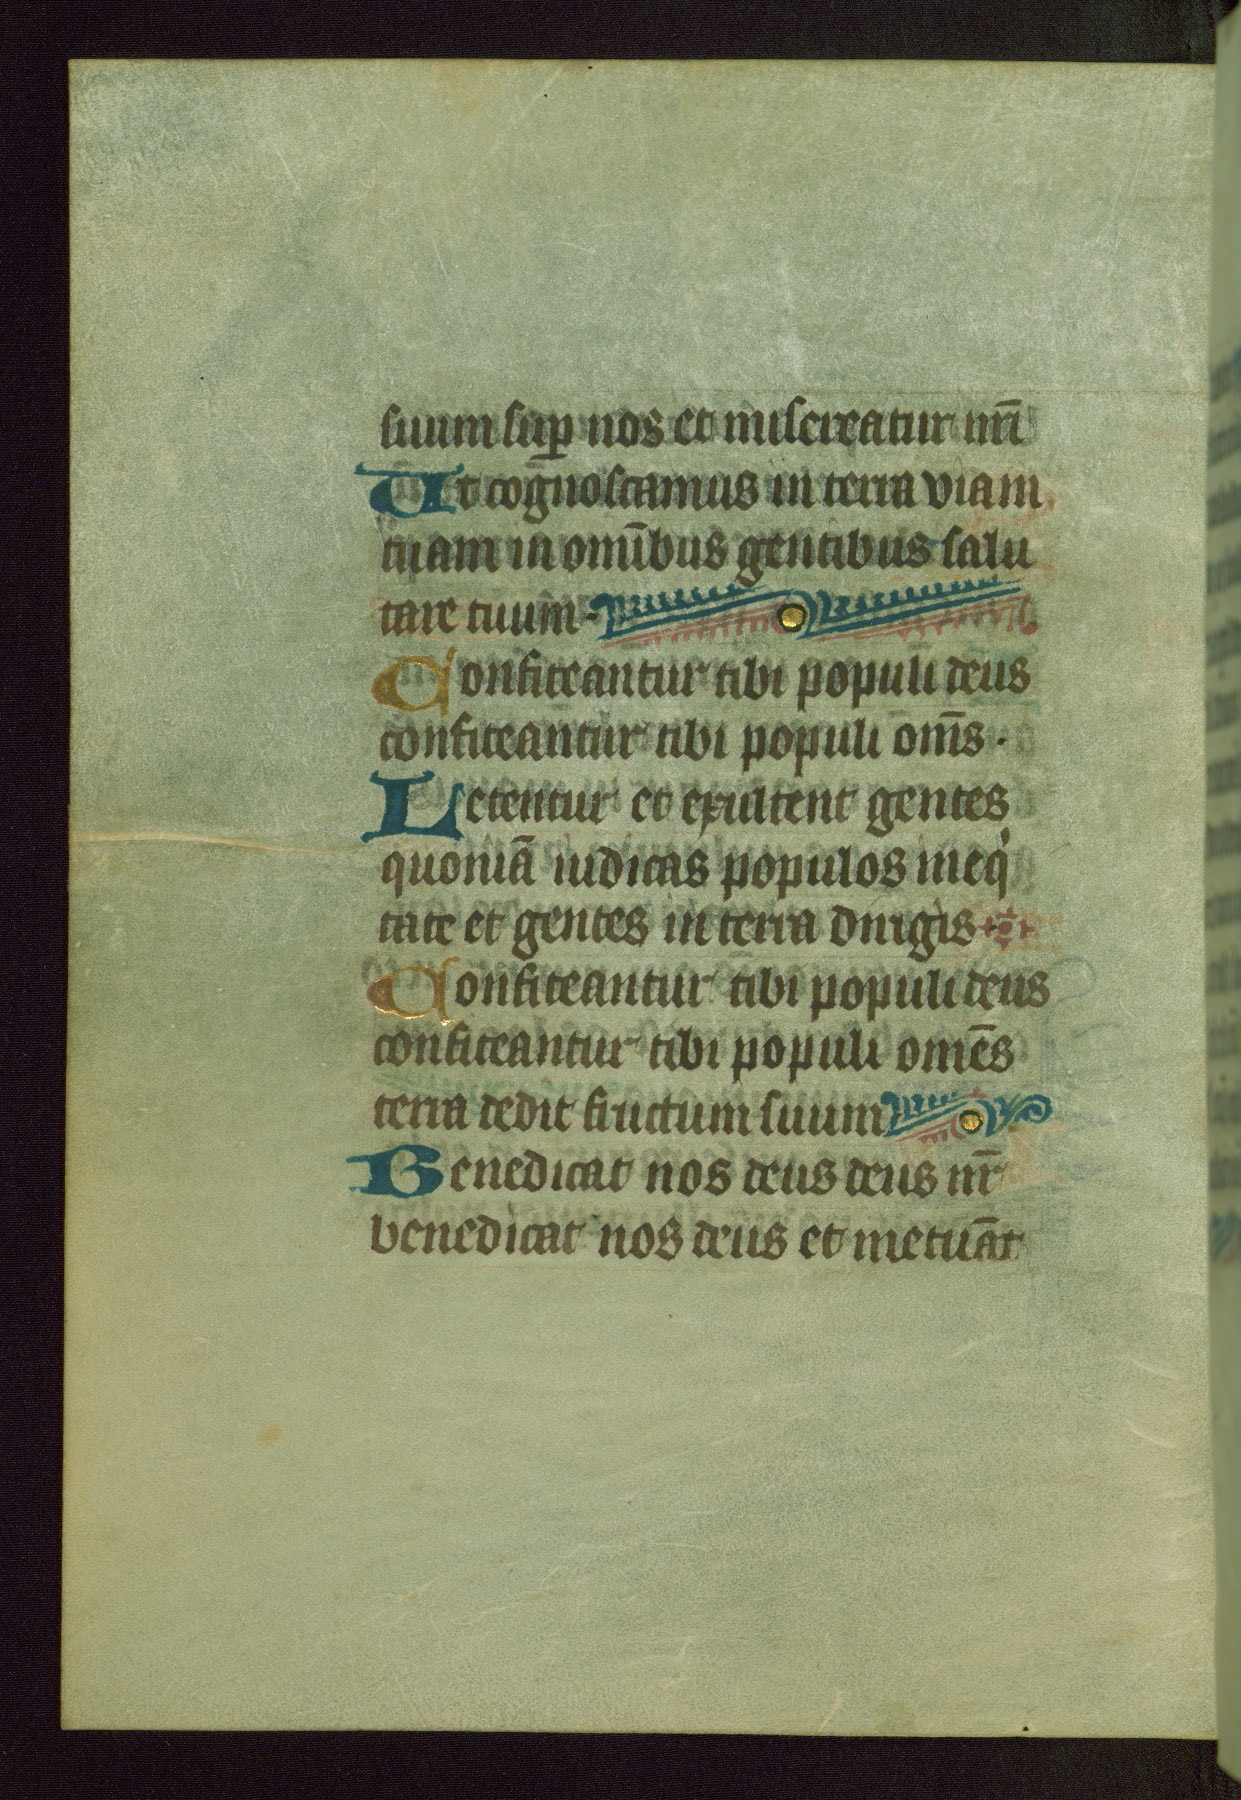 suum sup̲ nos et misereatur nr̄i
Ut cog̅noscamus in terra viam
tuam in omībus gentibus salu
tare tuum·
Confiteantur tibi populi deus
confiteantur tibi populi om̄s·
Letentur et exultent gentes
quoniā iudicas populos in eqͥ
tate et gentes in terra dirigis
Confiteantur tibi populi deus
confiteantur tibi populi omēs
terra dedit fructum suum
Benedicat nos deus deus nr̄
benedicat nos deus et metuāt